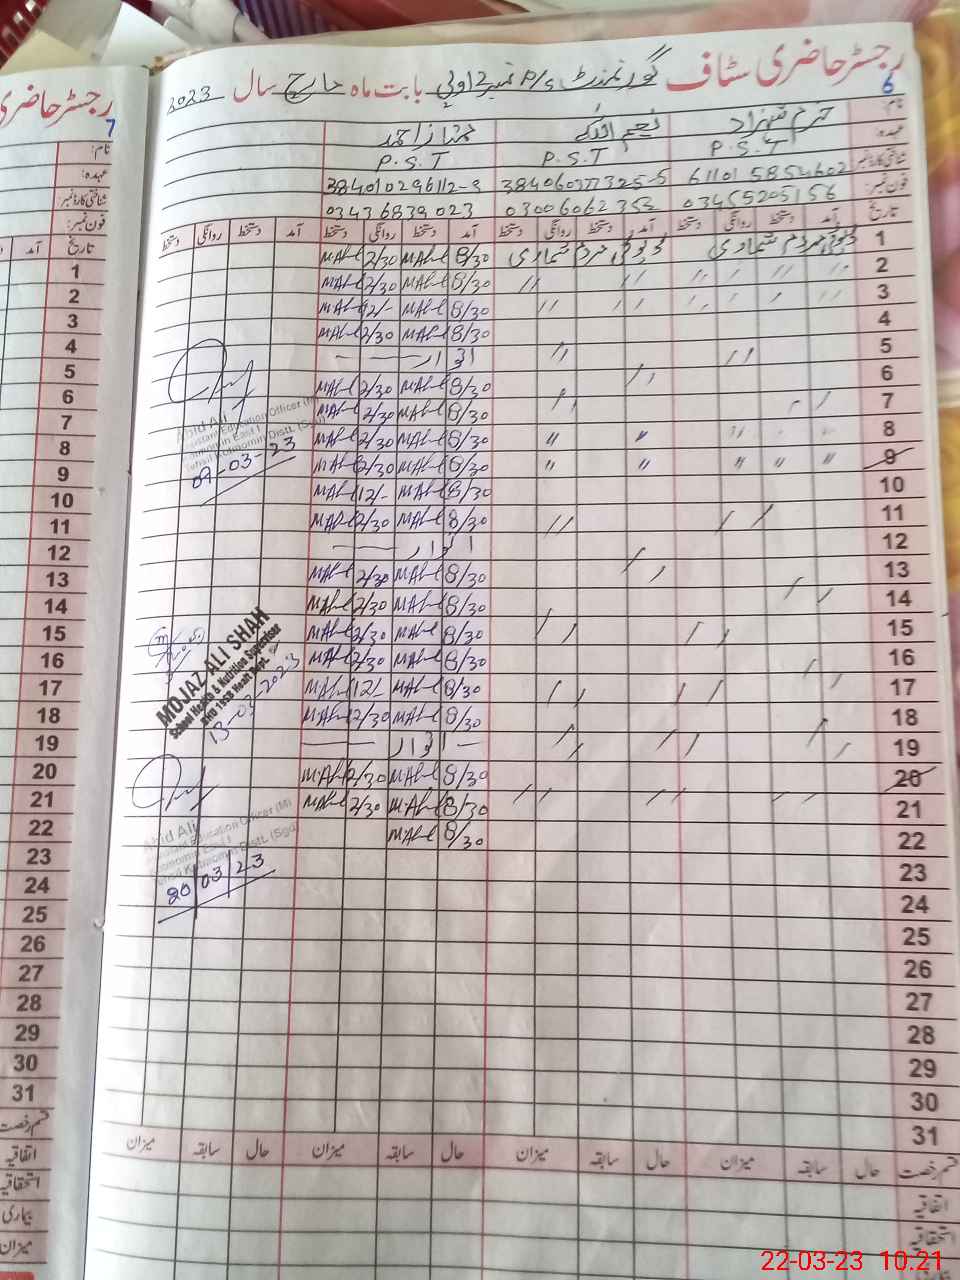 رجسٹر حاضری سٹاف گورنمنٹ P/S نمبر 2 بابت ماہ مارچ سال 2023
6
نام: خرم شہزاد نعیم اللہ ممتاز احمد
عہدہ: P.S.T P.S.T P.S.T
شناختی کارڈ نمبر: 384010296112-9
فون نمبر: 03455205156 03006062353 03436839023
تاریخ آمد دستخط روانگی دستخط آمد دستخط روانگی دستخط آمد دستخط روانگی دستخط آمد دستخط روانگی دستخط
1 ڈیوٹی مردم شماری ڈیوٹی مردم شماری 8/30 2/30
2 〃 〃 8/30 2/30
3 〃 〃 8/30 12/-
4 8/30 2/30
5 اتوار
6 8/30 2/30
7 8/30 2/30
8 〃 〃 8/30 2/30
9 〃 〃 〃 〃 〃 8/30 2/30
10 8/30 12/-
11 8/30 2/30
12 اتوار
13 8/30 2/30
14 8/30 2/30
15 8/30 2/30
16 8/30 2/30
17 8/30 12/-
18 8/30 2/30
19 اتوار
20 8/30 2/30
21 8/30 2/30
22 8/30
23
24
25
26
27
28
29
30
31
Abid Ali
Assistant Education Officer (M)
Kotmomin East I
Tehsil Kotmomin Distt. (Sgd)
07-03-23
MOJAZ ALI SHAH
School Health & Nutrition Supervisor
13-03-2023
Abid Ali
Assistant Education Officer (M)
Kotmomin East I
Tehsil Kotmomin Distt. (Sgd)
20/03/23
قسم رخصت حال سابقہ میزان حال سابقہ میزان حال سابقہ میزان حال سابقہ میزان
اتفاقیہ
استحقاقیہ
رجسٹر حاضری
7
نام:
عہدہ:
شناختی کارڈ نمبر:
فون نمبر:
تاریخ آمد
1
2
3
4
5
6
7
8
9
10
11
12
13
14
15
16
17
18
19
20
21
22
23
24
25
26
27
28
29
30
31
قسم رخصت
اتفاقیہ
استحقاقیہ
بیماری
میزان
22-03-23 10.21